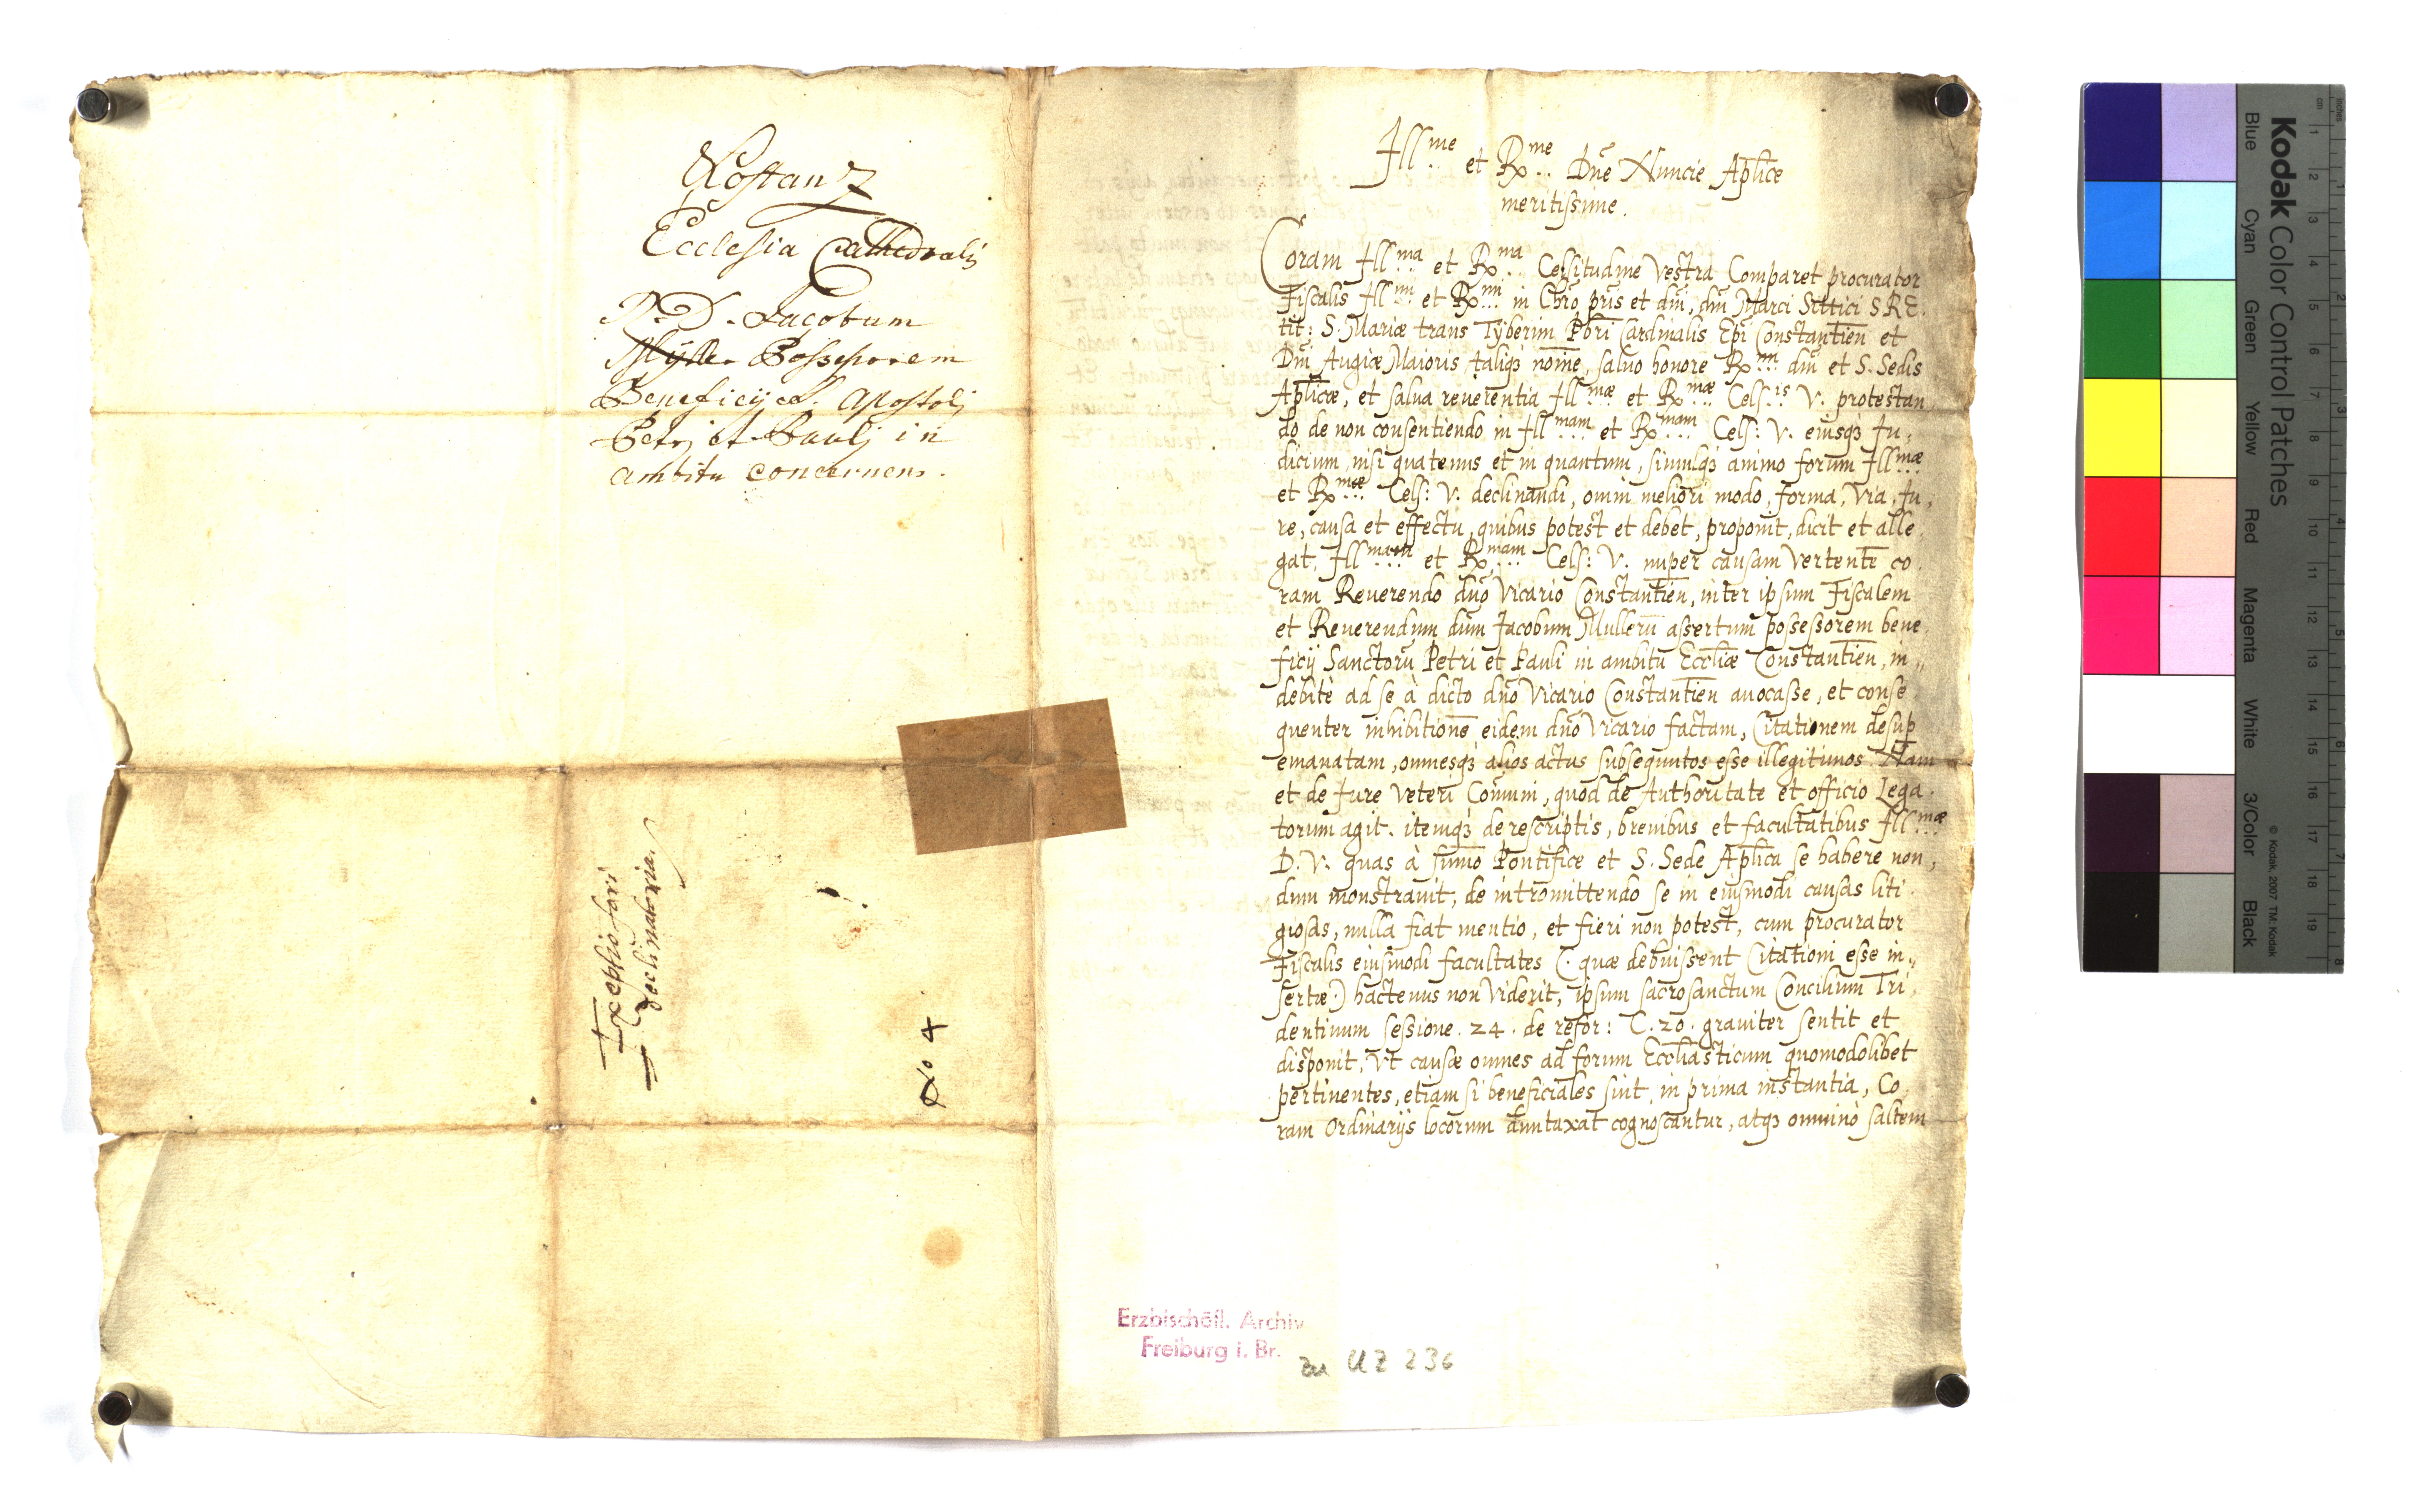 Costanz
Ecclesia Cathedralis
R. D. Jacobum
Myller Possessorem
Beneficij S. Apostolj
Petrj et Paulj in
ambitu concernens.
Exceptio fori
declinatoria.
No 4
Illme et Rme Dñe Nuncie Aplice
meritissime.
Coram Illma et Rma Celsitudine Vestra Comparet procurator
Fiscalis Illmi et Rmi in Chrõ pris et dñi, dñi Marci Sittici S.R.E.
tit: S. Mariæ trans Tyberim Pbri Cardinalis Epi Constantien et
Dñi Augiæ Maioris taliqz noïe, saluo honore Rmi dñi et S. Sedis
Aplicæ, et salua reuerentia Illmæ et Rmæ Celsis V. protestan
do de non consentiendo in Illmam et Rmam Cels: V. eiusqz Ju,
dicium, nisi quatenus et in quantum, simulqz animo forum Illmæ
et Rmæ Cels: V. declinandi, omni meliori modo, forma, via, Ju,
re, causa et effectu, quibus potest et debet, proponit, dicit et alle,
gat, Illmam et Rmam Cels: V. nuper causam vertente co,
ram Reuerendo dño Vicario Constantien, inter ipsum Fiscalem
et Reuerendum dũm Jacobum Mullerũ assertum possessorem bene,
ficij Sanctorũ Petri et Pauli in ambitu Eccliæ Constantien, in,,
debitè ad se à dicto dño Vicario Constantien auocasse, et conse
quenter inhibitionẽ eidem dño Vicario factam, Citationem desup
emanatam, omnesqz alios actus subsequutos esse illegitimos. Nam
et de Jure veteri Comuni, quod de Authoritate et officio Lega,
torum agit. itemqz de rescriptis, breuibus et facultatibus Illmæ
D. V. quas à sumo Pontifice et S. Sede Aplica se habere non,
dum monstrauit, de intromittendo se in eiusmodi causas liti
giosas, nulla fiat mentio, et fieri non potest, cum procurator
Fiscalis eiusmodi facultates (. quæ debuissent Citationi esse in,,
sertæ.) hactenus non viderit, ipsum sacrosanctum Concilium Tri,
dentinum sessione. 24. de refor: C. 20. grauiter sentit et
disponit, Vt causæ omnes ad forum Eccliasticum quomodolibet
pertinentes, etiam si beneficiales sint, in prima instantia, Co,
ram Ordinarijs locorum duntaxat cognoscantur, atqz omninò saltem
Erzbischöfl. Archiv
Freiburg i. Br.
zu UZ 236
Kodak Color Control Patches
Blue Cyan Green Yellow Red Magenta White 3/Color Black
© Kodak, 2007 TM: Kodak
cm 1 2 3 4 5 6 7 8 9 10 11 12 13 14 15 16 17 18 19
inches 1 2 3 4 5 6 7 8